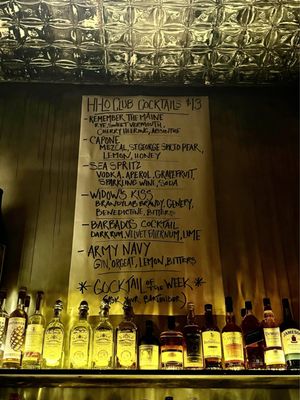 HHO CLUB COCKTAILS $13
- REMEMBER THE MAINE
RYE, SWEET VERMOUTH,
CHERRY HEERING, ABSINTHE
- CAPONE
MEZCAL, ST. GEORGE SPICED PEAR,
LEMON, HONEY
- SEA SPRITZ
VODKA, APEROL, GRAPEFRUIT,
SPARKLING WINE, SODA
- WIDOW'S KISS
BRANDYLAB BRANDY, GENEPY,
BENEDICTINE, BITTERS
- BARBADOS COCKTAIL
DARK RUM, VELVET FALERNUM, LIME
- ARMY NAVY
GIN, ORGEAT, LEMON, BITTERS
* COCKTAIL OF THE WEEK *
(ASK YOUR BARTENDER)